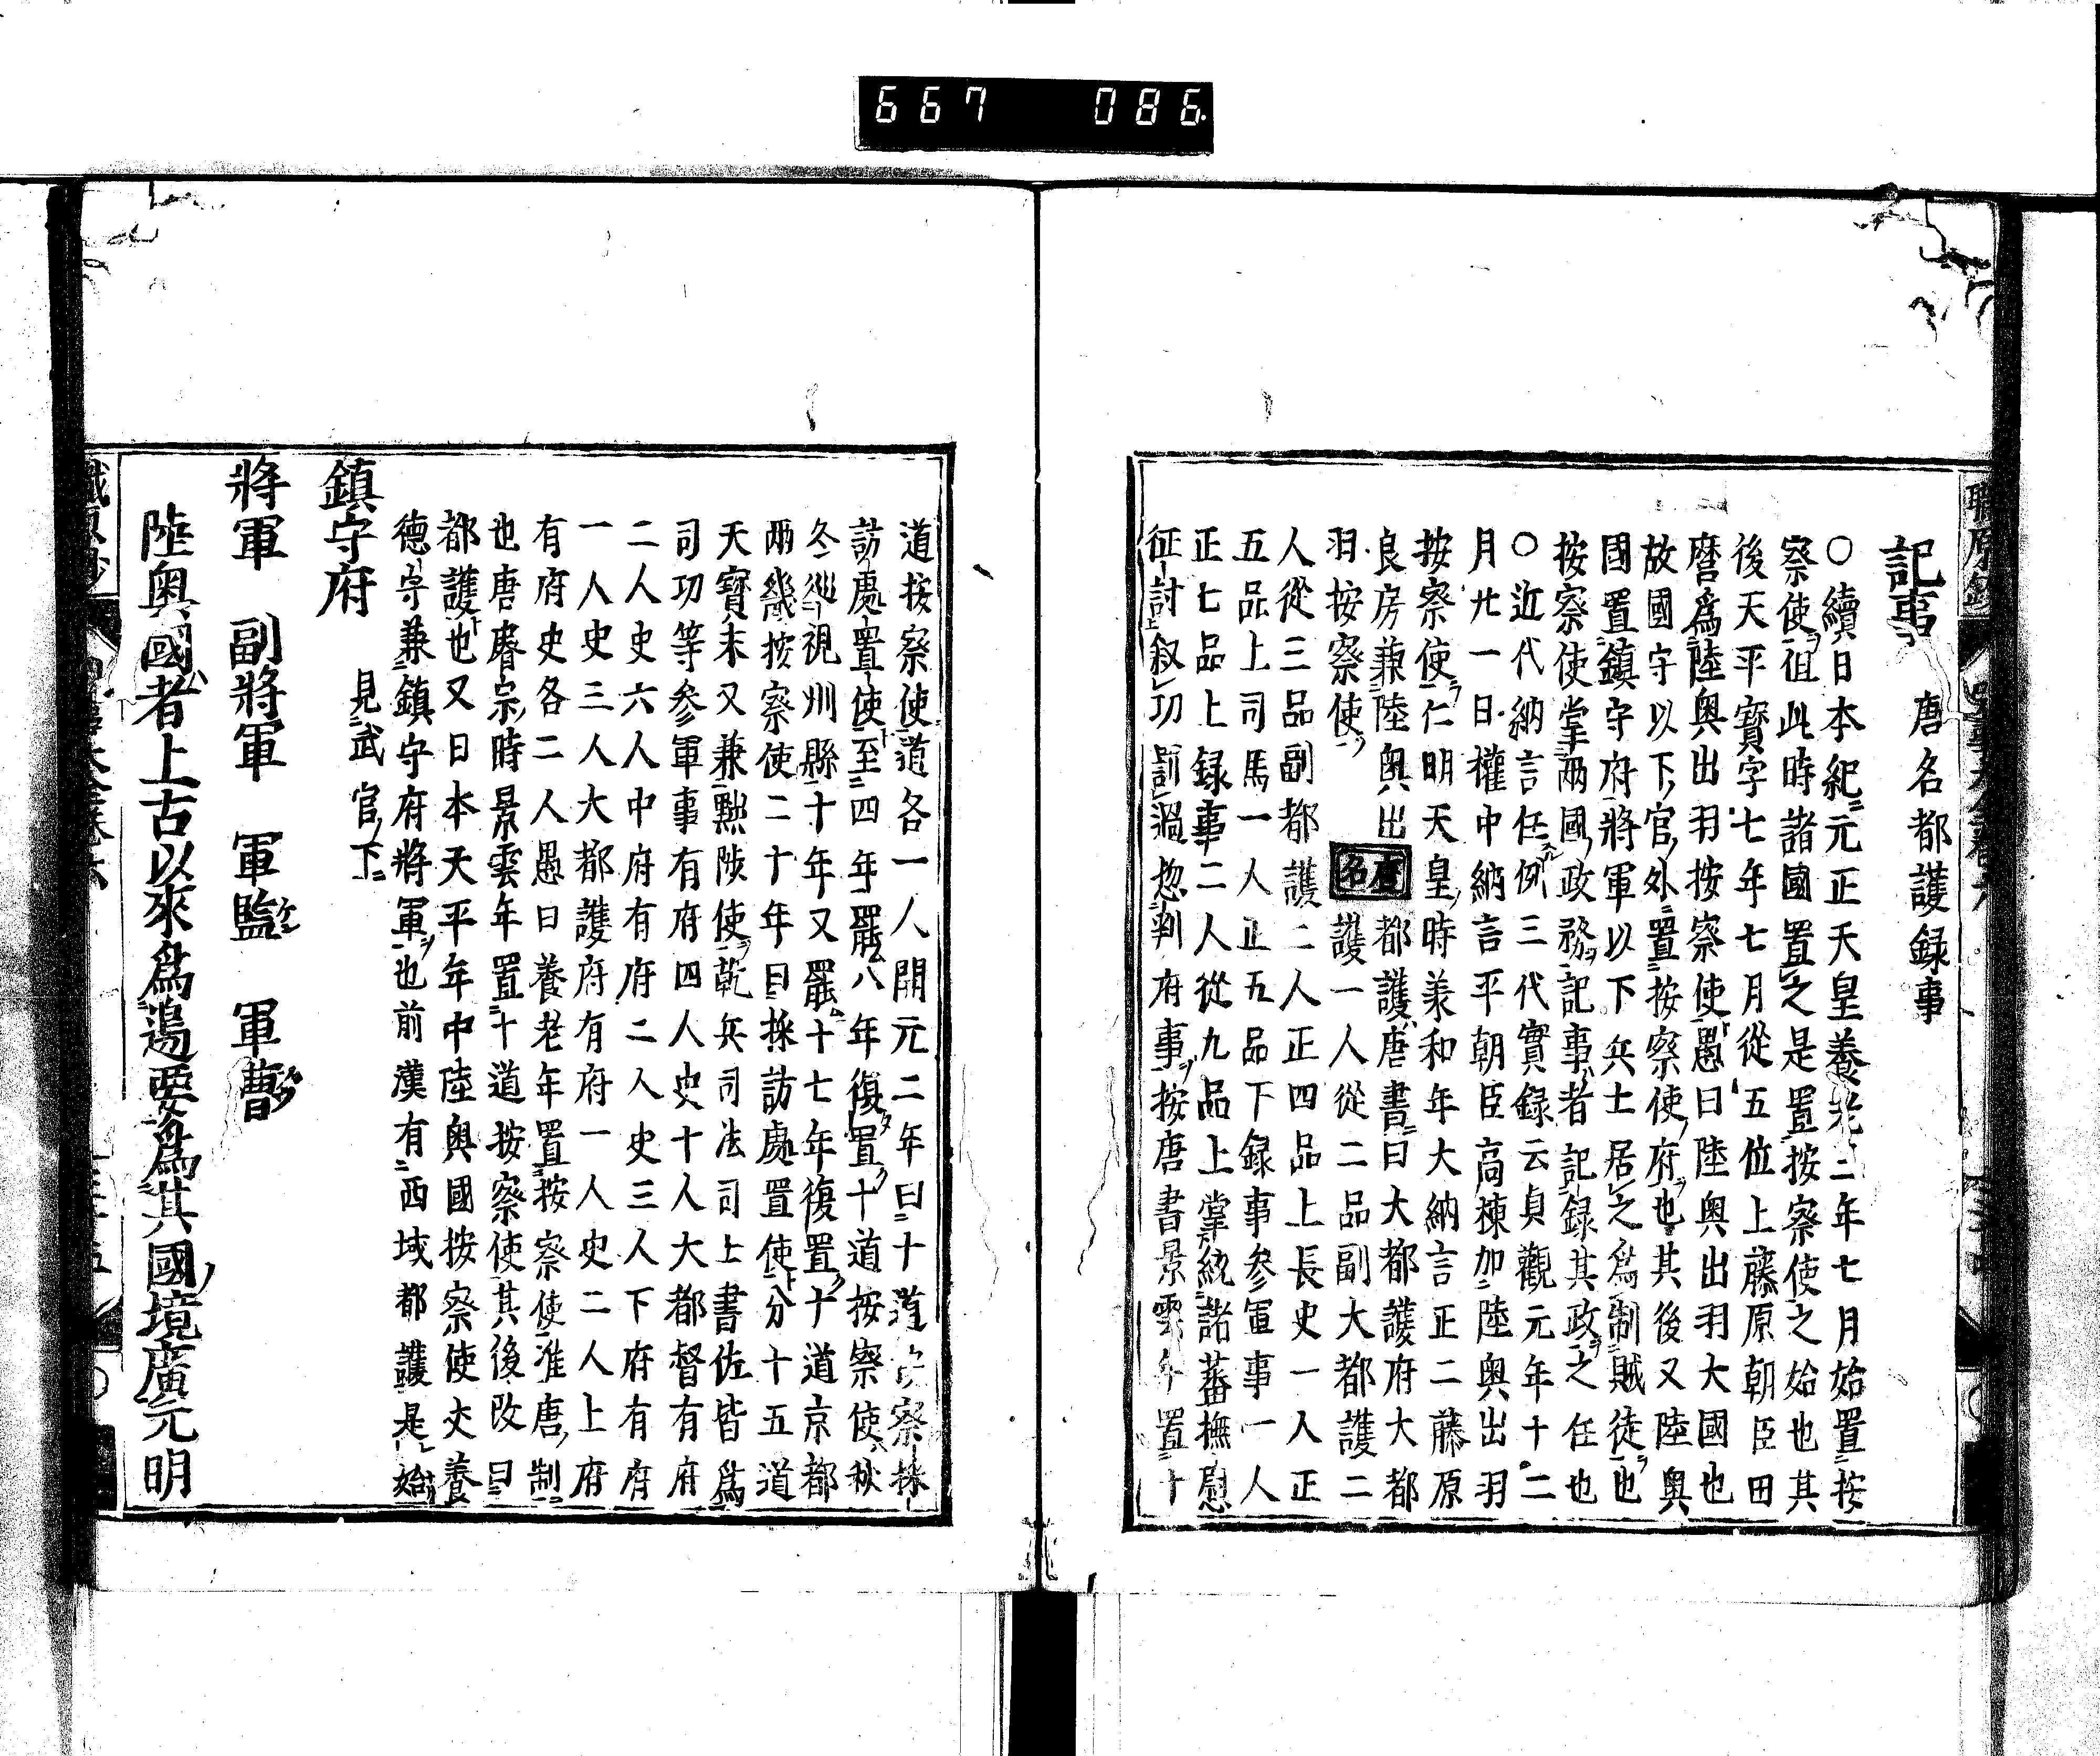 667 086
記事　唐名都護録事
○續日本紀元正天皇養老二年七月始置按
察使徂此時諸國置之是置按察使之始也其
後天平寳字七年七月從五位上藤原朝臣田
麿爲陸奥出羽按察使愚曰陸奥出羽大國也
故國守以下官外置按察使府也其後又陸奥
國置鎮守府將軍以下兵士居之爲制賊徒也
按察使掌兩國政務記事者記録其政之任也
○近代納言任例三代實録云貞觀元年十二
月廿一日權中納言平朝臣高棟加陸奥出羽
按察使仁明天皇時羕和年大納言正二藤原
良房兼陸奥出
羽按察使
唐名
都護唐書曰大都護府大都
護一人從二品副大都護二
人從三品副都護二人正四品上長史一人正
五品上司馬一人正五品下録事参軍事一人
正七品上録事二人從九品上掌統諸蕃撫慰
征討叙功罰過惣判府事按唐書景雲年置十
道按察使道各一人開元二年曰十道按察採
訪處置使至四年罷八年復置十道按察使秋
冬巡視州縣十年又罷十七年復置十道京都
兩畿按察使二十年曰採訪處置使分十五道
天寳末又兼黜陟使乾兵司法司士書佐皆爲
司功等参軍事有府四人史十人大都督有府
二人史六人中府有府二人史三人下府有府
一人史三人大都護府有府一人史二人上府
有府史各二人愚曰養老年置按察使准唐制
也唐睿宗時景雲年置十道按察使其後改曰
都護也又日本天平年中陸奥國按察使大養
德守兼鎮守府將軍也前漢有西域都護是始
鎮守府　見武官下
將軍　副將軍　軍監　軍曹
陸奥國者上古以來爲邊要爲其國境廣元明